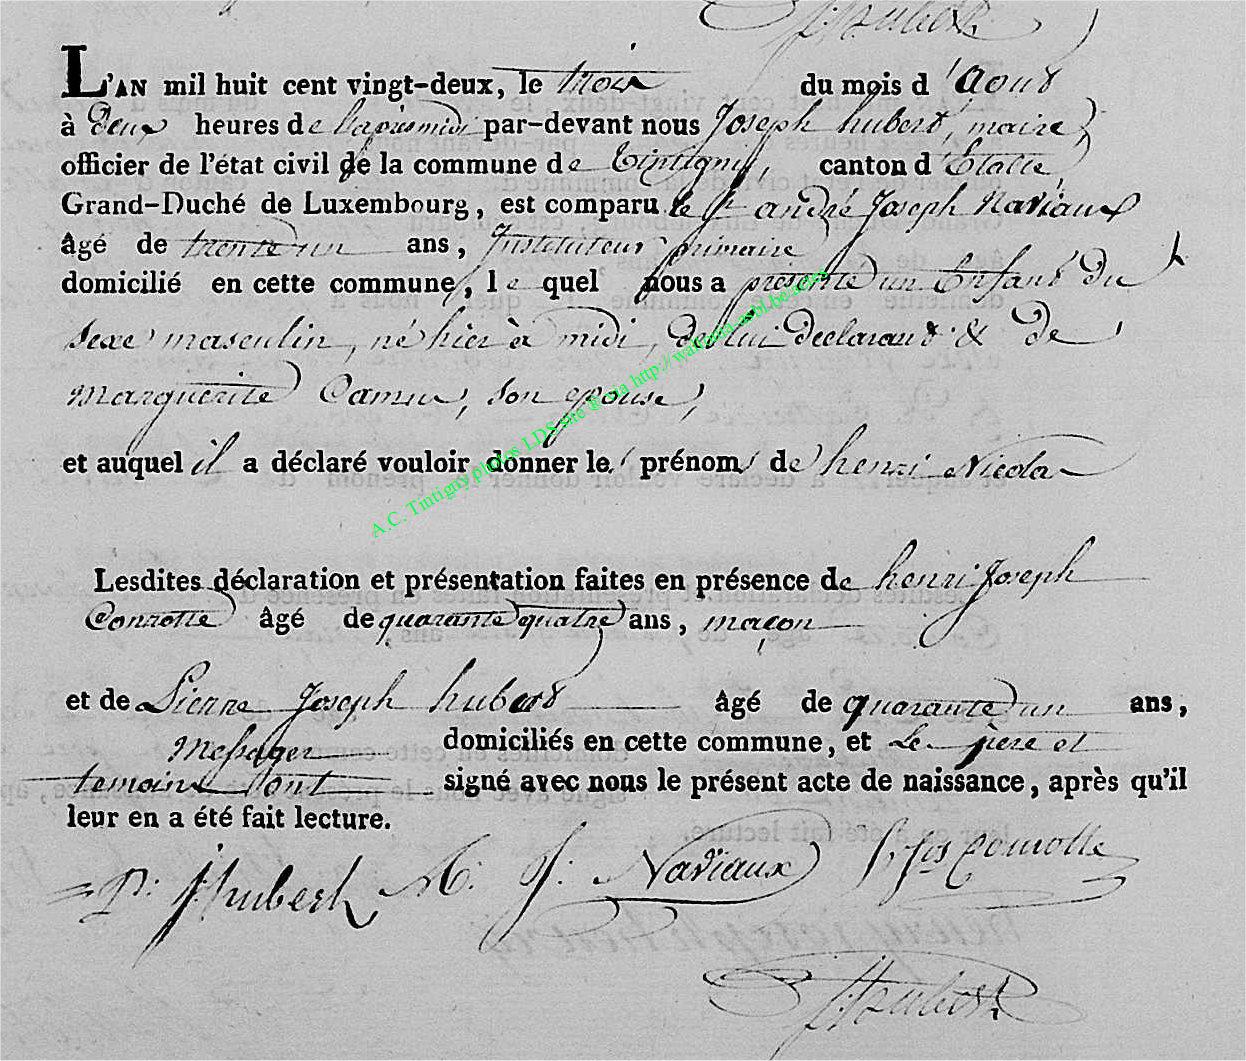 J. Hubert
L'AN mil huit cent vingt-deux, le trois du mois d'Aout
à deux heures de l'après midi par-devant nous Joseph hubert, maire,
officier de l'état civil de la commune de Tintigny, canton d'Etalle
Grand-Duché de Luxembourg, est comparu le Sr andré Joseph Naviaux
âgé de trente un ans, Instituteur primaire
domicilié en cette commune, le quel nous a présenté un Enfant du
sexe masculin, né hier à midi, de lui Declarant & de
Marguerite Camu, son epouse,
et auquel il a déclaré vouloir donner les prénoms de henri Nicolas
A.C. Tintigny photos LDS site ® via http://wallonia-asbl.be/actes
Lesdites déclaration et présentation faites en présence de henri Joseph
Conrotte âgé de quarante quatre ans, maçon
et de Pierre Joseph hubert âgé de quarante un ans,
Messager domiciliés en cette commune, et Le père et
temoins ont signé avec nous le présent acte de naissance, après qu'il
leur en a été fait lecture.
P: J hubert J: Naviaux Jos Conrotte
J. Hubert